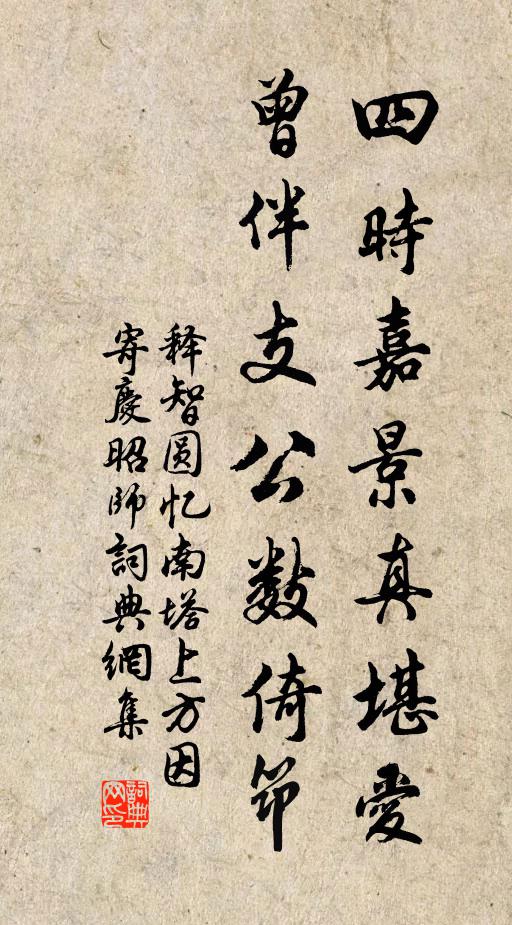 四時嘉景真堪愛
曾伴支公數倚筇
释智圆忆南塔上方因
寄慶昭師詞典網集
詞典
网印